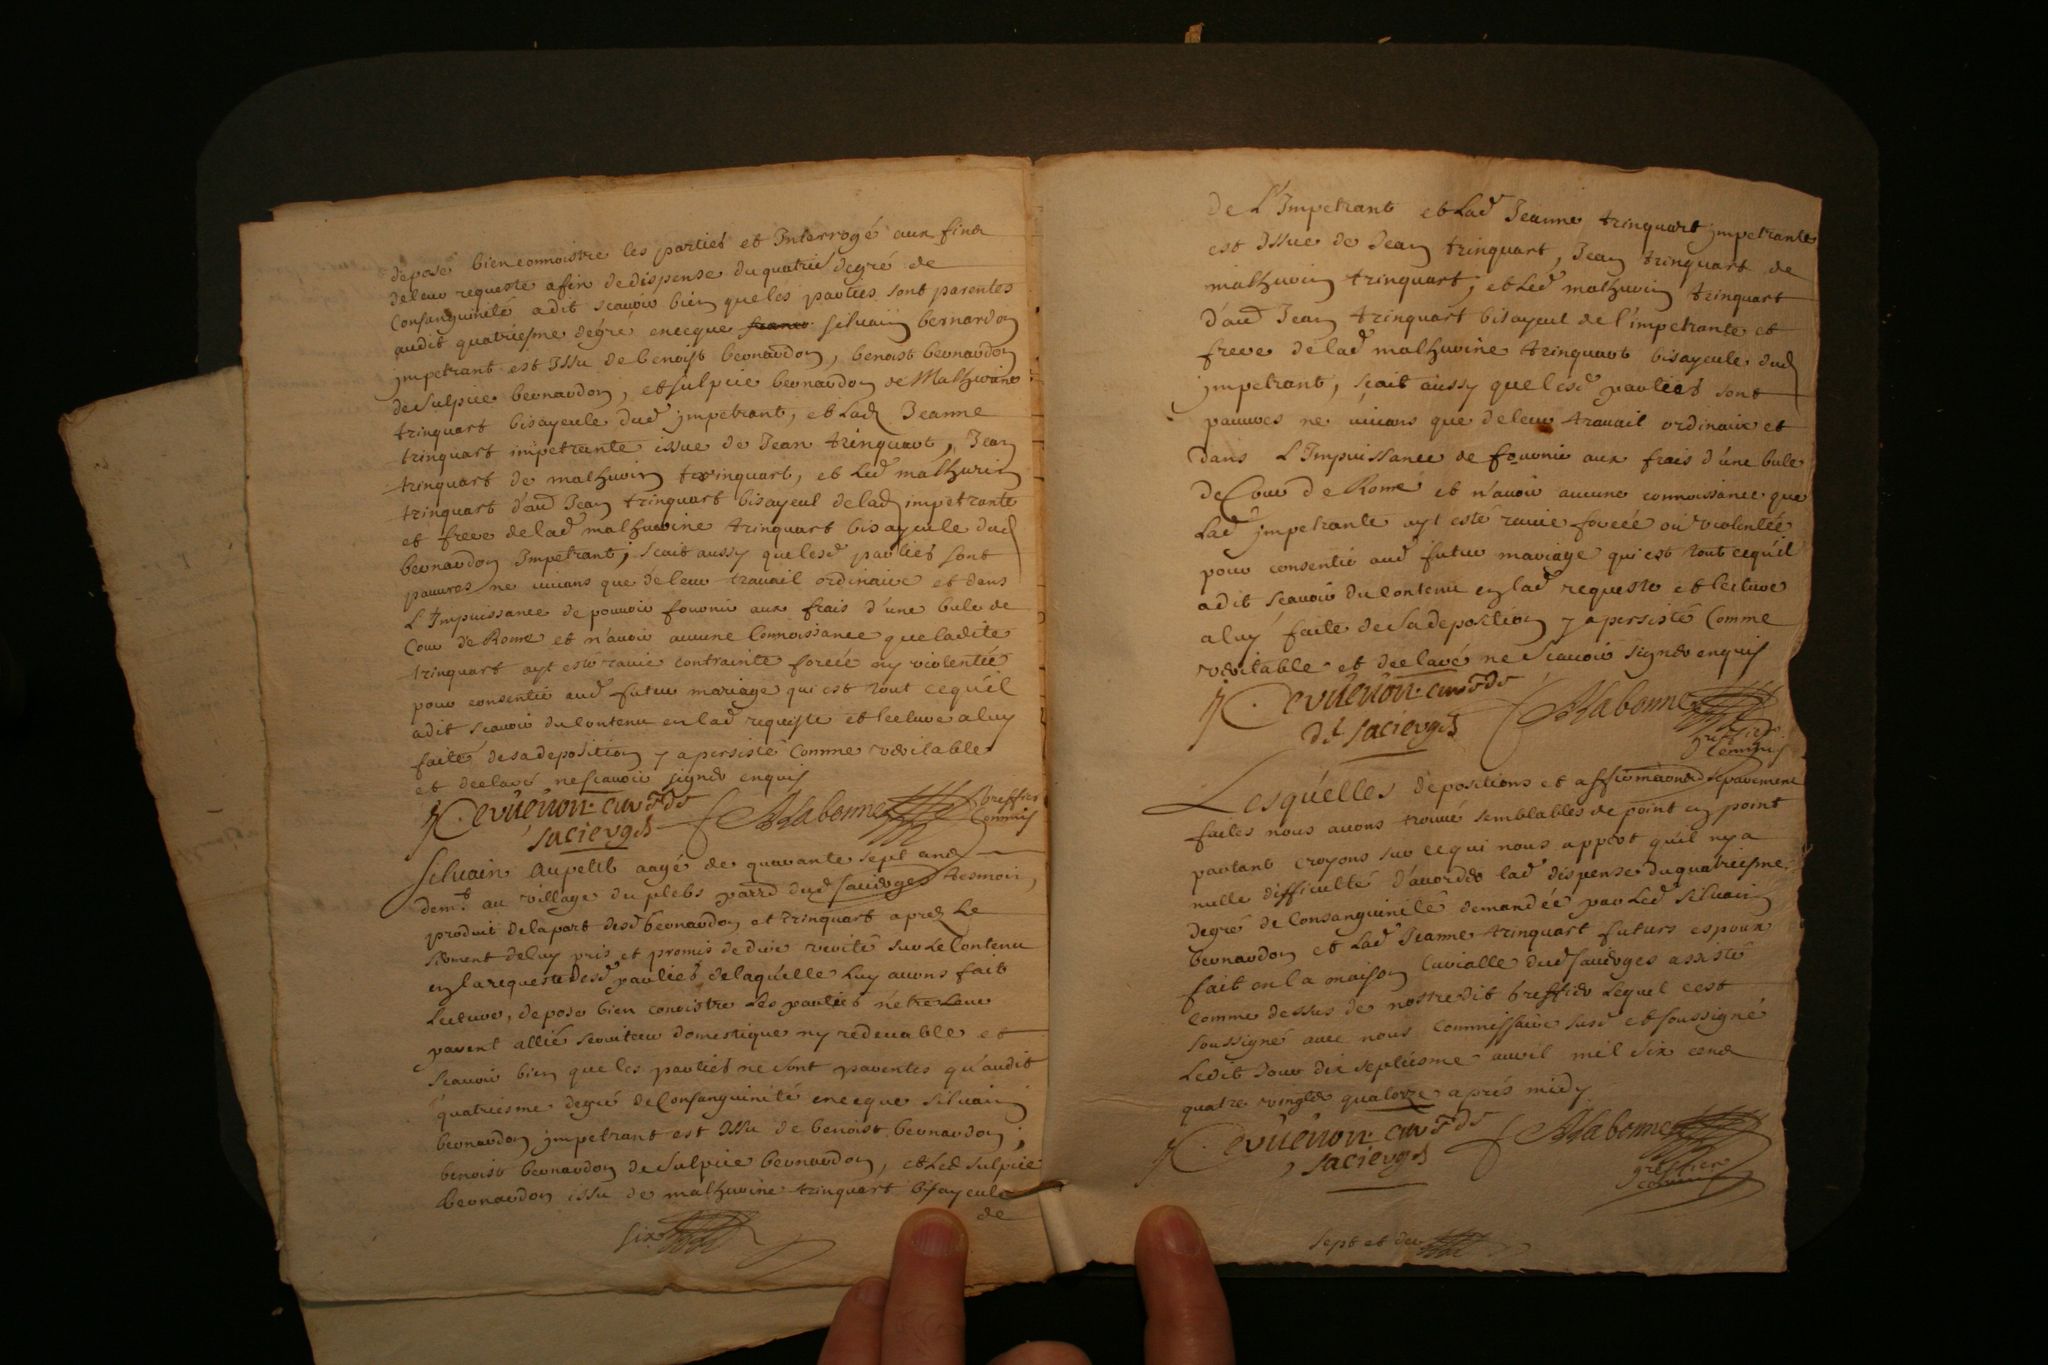 depose bien connoistre les parties et Interrogé aux fins
de leur requeste afin de dispense du quatries degré de
Consanguinité a dit scavoir bien que les parties sont parentes
audit quatriesme degré en ce que silvain bernardon
jmpetrant est Issu de benoist bernardon, benoist bernardon
de Sulpice bernardon, et sulpice bernardon de Mathurine
trinquart bisayeule dud jmpetrant, et Lad Jeanne
trinquart impetrante issue de Jean trinquart, Jean
trinquart de mathurin trinquart, et Led mathurin
trinquart d'aud Jean trinquart bisayeul de lad impetrante
et frere de lad mathurine trinquart bisayeule dud
bernardon Impetrant; scait aussy que lesd parties sont
pauvres ne vivans que de leur travail ordinaire et dans
L'Impuissance de pouvoir fournir aux frais d'une bule de
Cour de Rome et n'avoir aucune Connoissance que ladite
trinquart ayt esté ravie contrainte forcée ny violentée
pour consentir aud futur mariage qui est tout ce qu'il
a dit scavoir du Contenu en lad requeste et lecture a luy
faite de sa deposition y a persisté Comme veritable
et declaré ne scavoir signer enquis
Cevuenon curé de
saciergs ALabonne Greffier
Commis
Silvain Aupetit aagé de quarante sept ans
demt au village du plebs parr dud saciergs tesmoin
produit de la part desd bernardon et trinquart apres Le
serment de luy pris et promis de dire verité sur Le Contenu
en la requeste desd parties de laquelle Luy avons fait
Lecture, depose bien conoistre Les parties n'etre Leur
parent allié serviteur domestique ny redevable et
scavoir bien que les parties ne sont parentes qu'audit
quatriesme degré de Consanguinité en ce que silvain
bernardon jmpetrant est Issu de benoist bernardon;
benoist bernardon de Sulpice bernardon, et Led Sulpice
bernardon issu de mathurine trinquart bisayeule
de
six
de L'Impetrant et Lad Jeanne trinquart jmpetrante
est Issue de Jean trinquart, Jean trinquart de
mathurin trinquart; et Led mathurin trinquart
d'aud Jean trinquart bisayeul de l'impetrante et
frere de lad mathurine trinquart bisayeule dud
jmpetrant, scait aussy que lesd parties sont
pauvres ne vivans que de leur travail ordinaire et
dans L'Impuissance de fournir aux frais d'une bule
de Cour de Rome et n'avoir aucune connoissance que
Lad jmpetrante ayt esté ravie forcée ou violentée
pour consentir aud futur mariage qui est tout ce qu'il
a dit scavoir du Contenu en lad requeste et lecture
a luy faite de sa deposition y a persisté Comme
veritable et declaré ne scavoir signer enquis
Cevuenon curé de
de saciergs ALabonne
greffier
Commis
Lesquelles depositions et affirmaons separement
faites nous avons trouvé semblables de point en point
partant croyons sur ce qui nous appert qu'il ny a
nulle difficulté d'accorder lad dispense du quatriesme
degré de Consanguinité demandée par Led Silvain
bernardon et Lad Jeanne trinquart futurs espoux
fait en la maison Curialle dud saciergs assisté
comme dessus de nostredit Greffier Lequel c'est
soussigné avec nous Commissaire susd et soussigné
Ledit Jour dix septiesme avril mil six cens
quatre vingts quatorze aprés midy
Cevuenon curé de
saciergs ALabonne
greffier
commis
sept et der